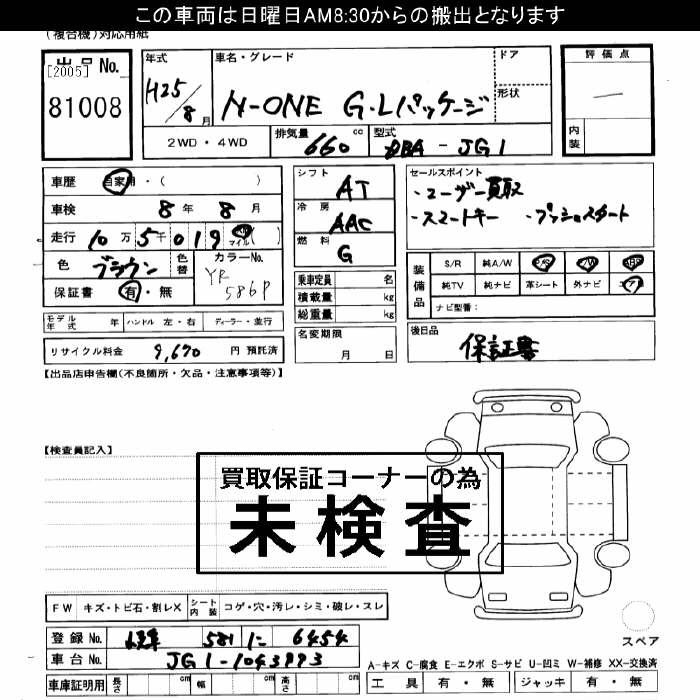 この車両は日曜日AM8:30からの搬出となります
(複合機)対応用紙
出品No.
[2005]
81008
年式 H25/8月
車名・グレード N-ONE G・Lパッケージ
ドア
形状
評価点
内装
2WD・4WD
排気量 660 cc
型式 DBA - JG1
車歴 自家用・( )
車検 8年 8月
走行 10万5千019 マイル( )
色 ブラウン
色替
カラーNo. YR586P
保証書 有・無
シフト AT
冷房 AAC
燃料 G
乗車定員 名
積載量 kg
総重量 kg
名変期限 月 日
セールスポイント
・ユーザー買取
・スマートキー ・プッシュスタート
装備品
S/R 純A/W P/S P/W ABS
純TV 純ナビ 革シート 外ナビ エアB
ナビ型番:
モデル年式 年 ハンドル 左・右 ディーラー・並行
リサイクル料金 9,670 円 預託済
後日品 保証書
【出品店申告欄(不良箇所・欠品・注意事項等)】
【検査員記入】
買取保証コーナーの為
未検査
FW キズ・トビ石・割レX シート内装 コゲ・穴・汚レ・シミ・破レ・スレ
スペア
登録No. 581 に 6454
車台No. JG1-1043993
A-キズ C-腐食 E-エクボ S-サビ U-凹ミ W-補修 XX-交換済
車庫証明用 長さ cm 幅 cm 高さ cm
工具 有・無 ジャッキ 有・無